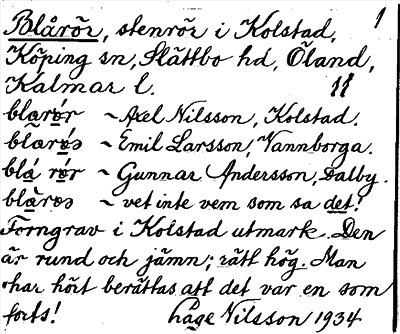 Blårör, stenrör i Kolstad, 1
Köping sn, Slättbo hd, Öland,
Kalmar l. 11
blarǿr ~ Axel Nilsson, Kolstad.
blarǿs ~ Emil Larsson, Vannborga.
blá rǿr ~ Gunnar Andersson, Dalby.
blàrøs ~ vet inte vem som sa det!
Forngrav i Kolstad utmark. Den
är rund och jämn; rätt hög. Man
har hört berättas att det var en som
forts! Åage Nilsson 1934